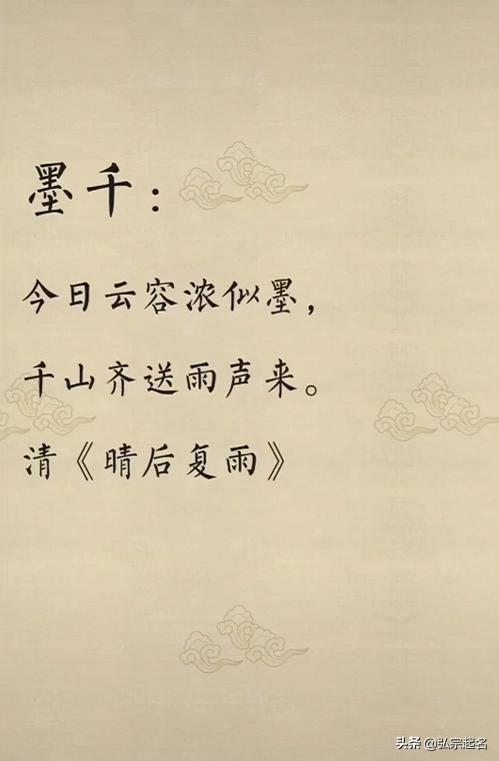 墨千：
今日云容浓似墨，
千山齐送雨声来。
清《晴后复雨》
头条 @弘宗起名